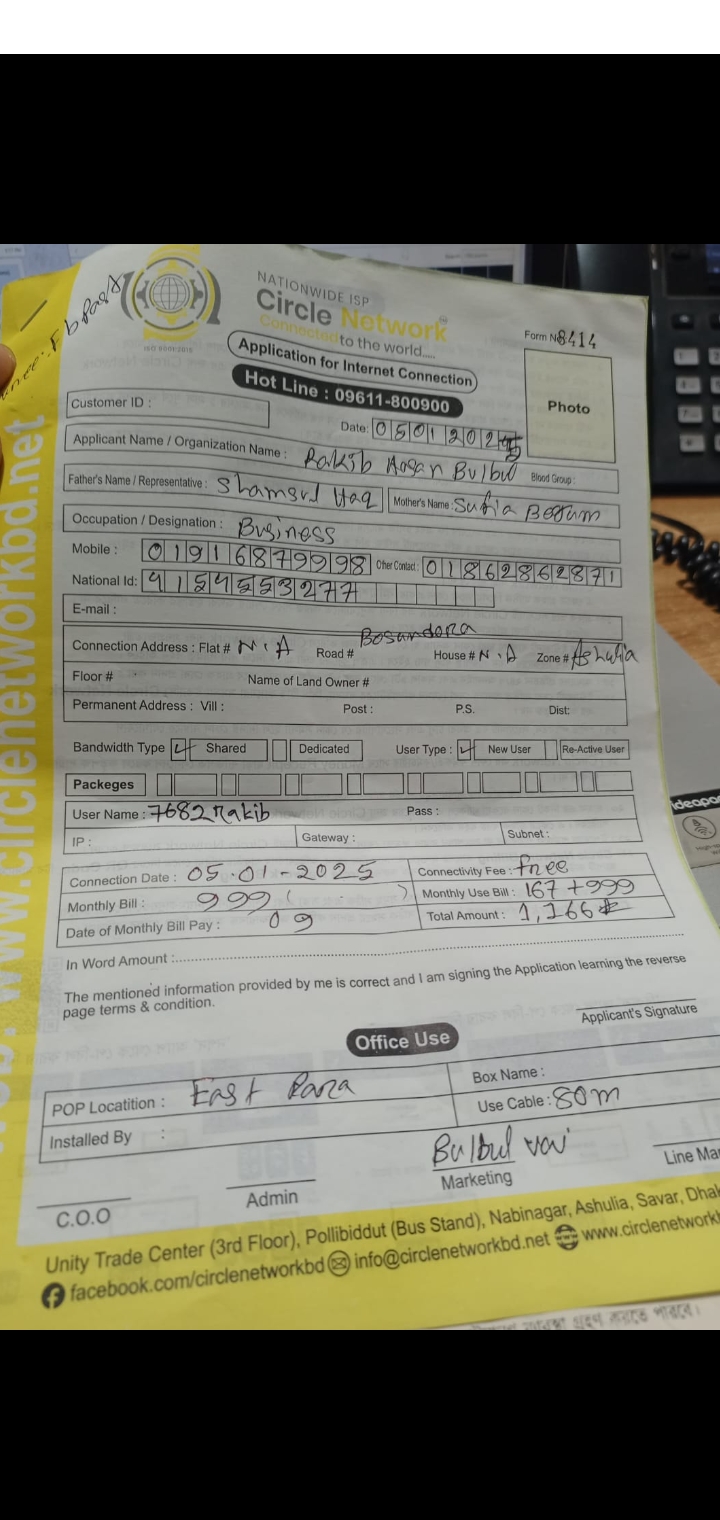 NATIONWIDE ISP
Circle Network
Connected to the world.....
ISO 9001:2015
Form No 8414
Application for Internet Connection
Hot Line : 09611-800900
Photo
Customer ID :
Date: 05012025
Applicant Name / Organization Name : Rakib Hosan Bulbul Blood Group :
Father's Name / Representative : Shamsul Haq Mother's Name : Sufia Begum
Occupation / Designation : Business
Mobile : 01916879998 Other Contact : 01862862871
National Id: 4154553277
E-mail :
Connection Address : Flat # N.A Road # Bosundora House # N.A Zone # Ashulia
Floor # Name of Land Owner #
Permanent Address : Vill : Post : P.S. Dist:
Bandwidth Type Shared Dedicated User Type : New User Re-Active User
Packeges
User Name : 7682rakib Pass :
IP : Gateway : Subnet :
Connection Date : 05.01-2025 Connectivity Fee : free
Monthly Bill : 999 ( ) Monthly Use Bill : 167+999
Date of Monthly Bill Pay : 09 Total Amount : 1,166
In Word Amount :
The mentioned information provided by me is correct and I am signing the Application learning the reverse
page terms & condition.
Applicant's Signature
Office Use
POP Locatition : East Para Box Name :
Installed By : Use Cable : 80m
Bulbul vai
C.O.O Admin Marketing Line Ma
Unity Trade Center (3rd Floor), Pollibiddut (Bus Stand), Nabinagar, Ashulia, Savar, Dhak
facebook.com/circlenetworkbd info@circlenetworkbd.net www.circlenetworkb
www.circlenetworkbd.net
ideapad